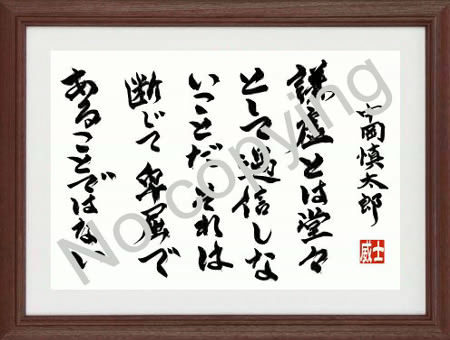 中岡慎太郎
謙虚とは堂々
として過信しな
いことだ。それは
断じて卑屈で
あることではない
士威
No copying